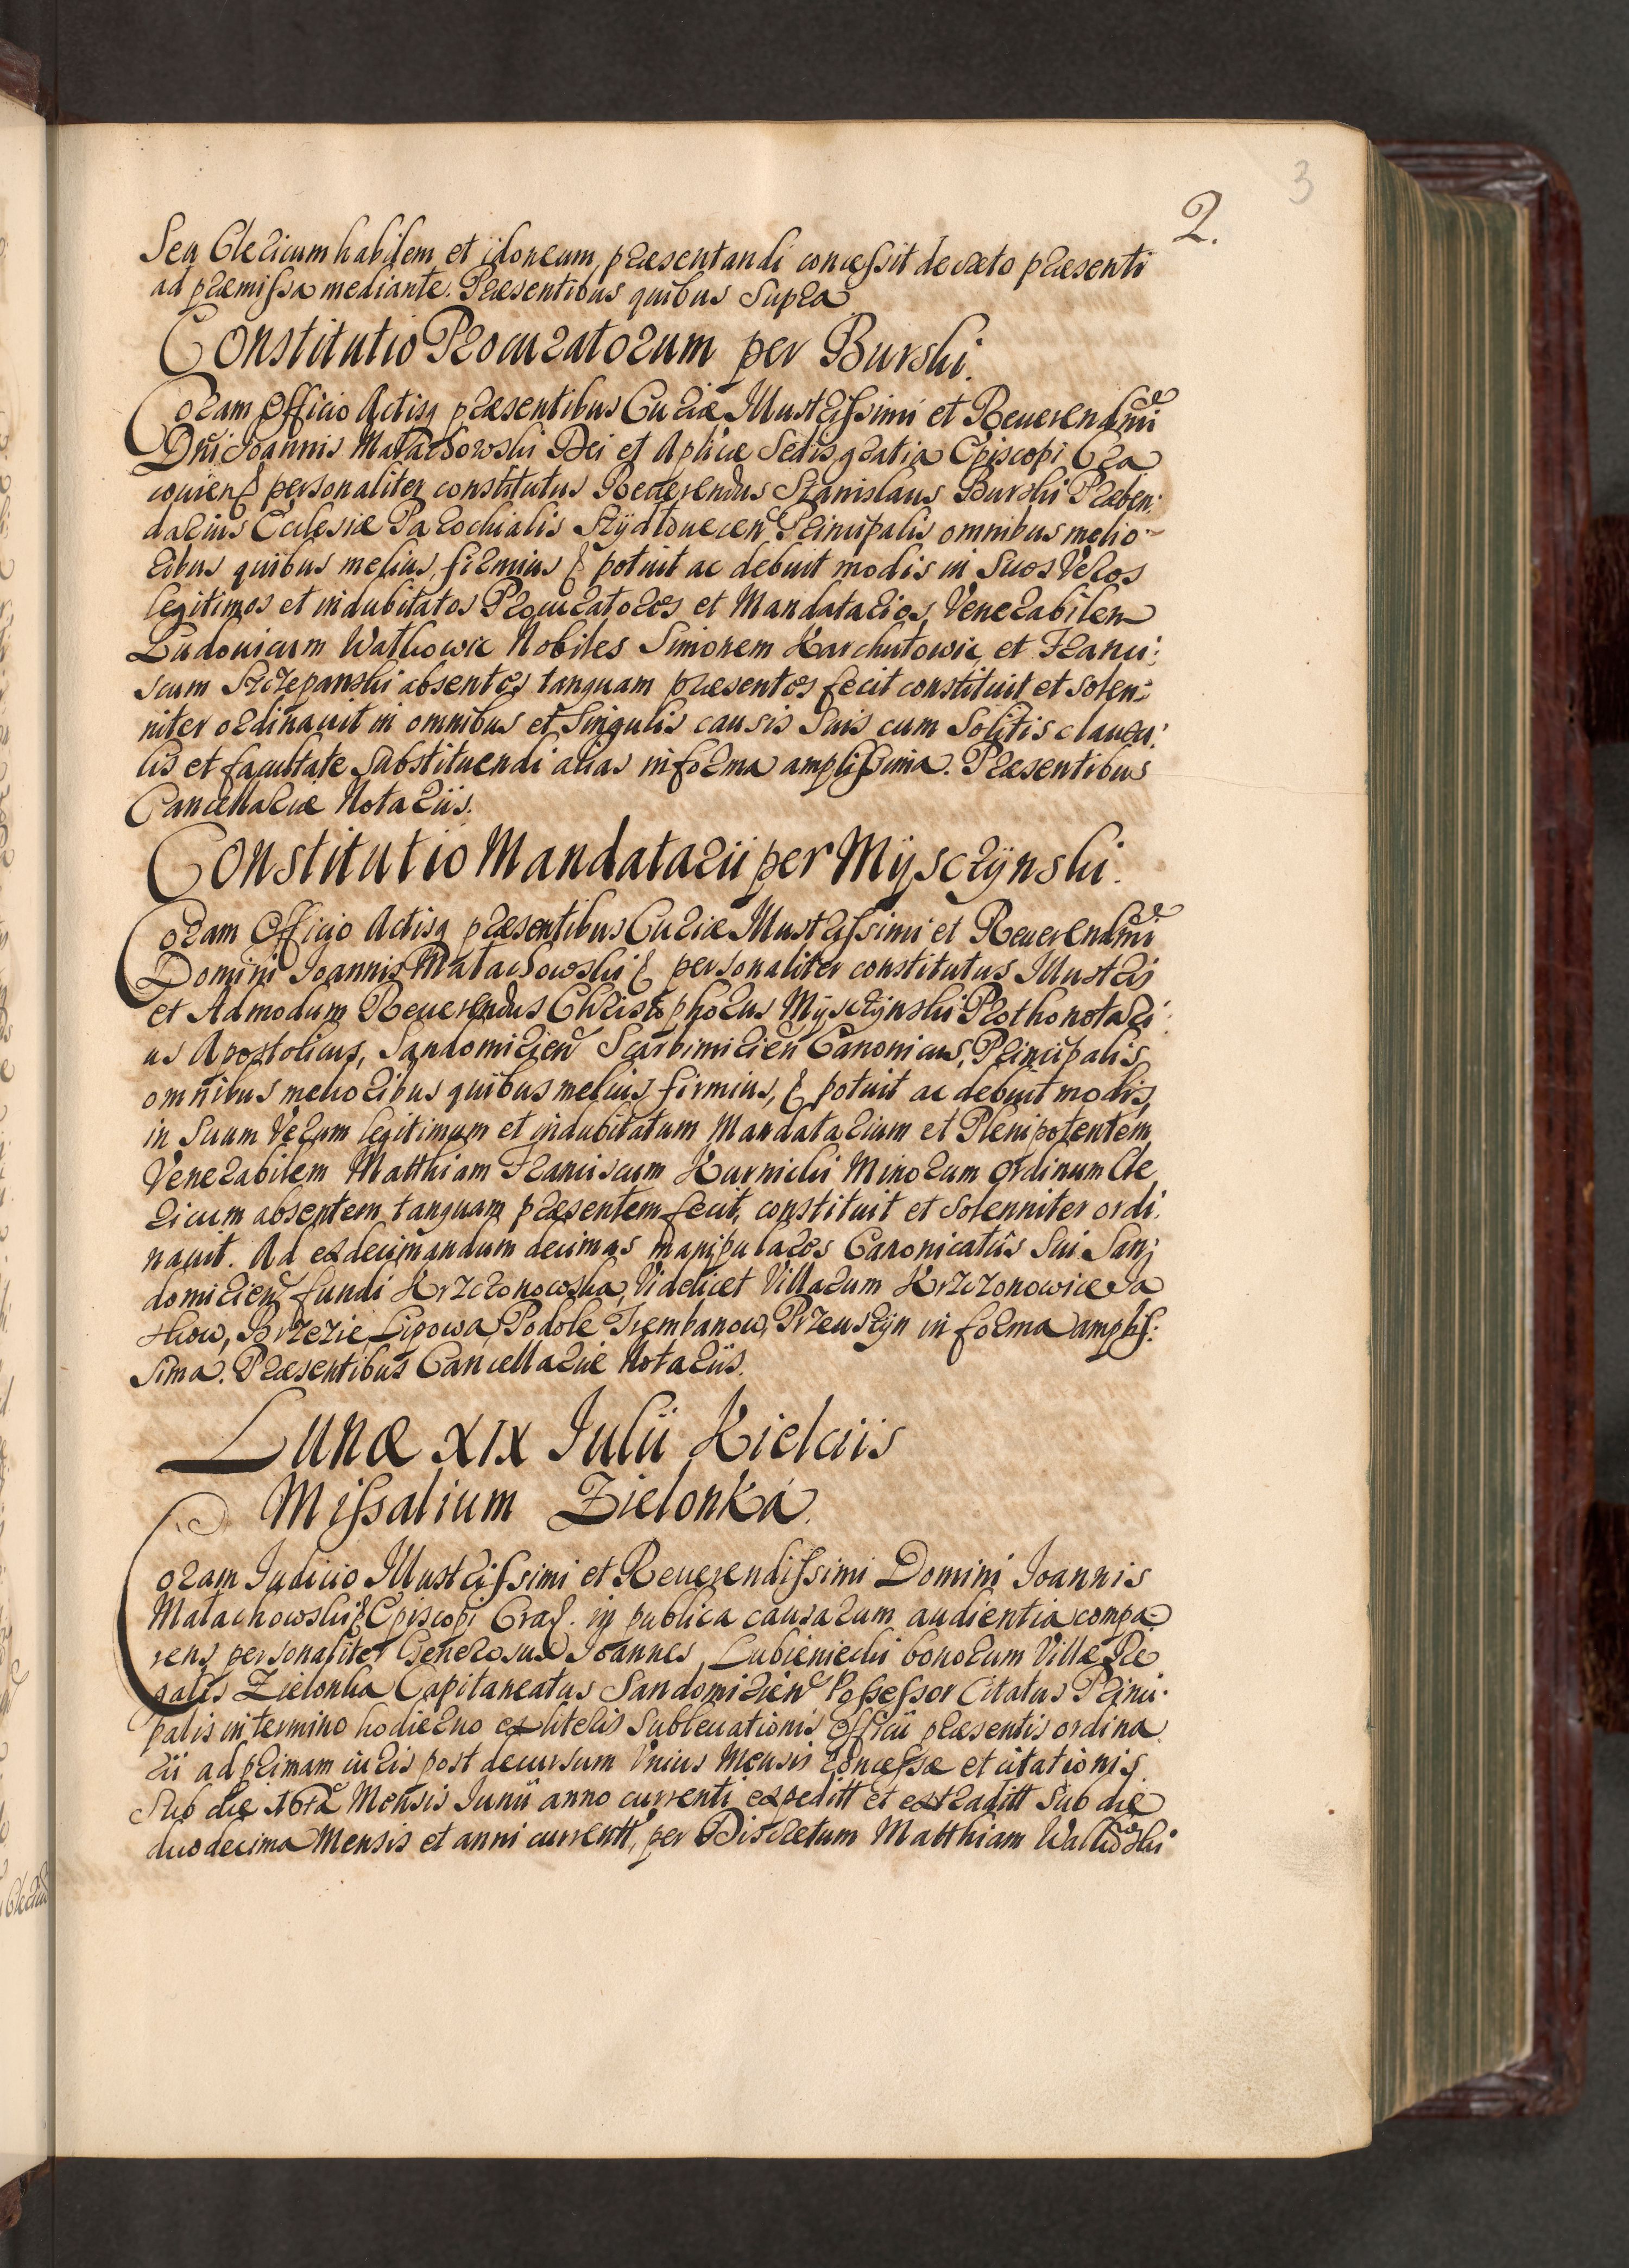 3
2.
Seu Clericum habilem et idoneum, præsentandi concessit decreto præsenti
ad præmissa mediante. Præsentibus quibus Supra
Constitutio Procuratorum per Burski.
Coram Officio Actisq præsentibus Curiæ Illustrissimi et Reuerendmi
Dni Joannis Małachowski Dei et Aplicæ Sedis gratia Episcopi Cra
couien personaliter constitutus Reuerendus Stanislaus Burski Præben:
darius Ecclesiæ Parochialis Szÿdłouecen Principalis omnibus melio
ribus quibus melius, firmius & potuit ac debuit modis in Suos Veros
legitimos et indubitatos Procuratores et Mandatarios, Venerabilem
Ludouicum Watkowic Nobiles Simonem Karchutowic, et Franci:
scum Szczepanski absentes tanquam præsentes fecit constituit et solen:
niter ordinauit in omnibus et Singulis causis Suis cum Solitis clausu:
lis et facultate Substituendi alias in forma amplissima. Præsentibus
Cancellariæ Notariis.
Constitutio Mandatarii per Mÿsczÿnski.
Coram Officio Actisq præsentibus Curiæ Illustrissimi et Reuerendmi
Domini Joannis Małachowski & personaliter constitutus Illustris
et Admodum Reuerendus Christophorus Mÿsczÿnski Prothonotari:
us Apostolicus, Sandomirien Scarbimirien Canonicus, Principalis
omnibus melioribus quibus melius, firmius, & potuit ac debuit modis,
in Suum Verum legitimum et indubitatum Mandatarium et Plenipotentem
Venerabilem Matthiam Franciscum Kurnicki Minorum Ordinum Cle
ricum absentem tanquam præsentem fecit, constituit et Solenniter ordi:
nauit. Ad exdecimandum decimas manipulares Canonicatûs Sui San:
domirien fundi Krzczonowska, Videlicet Villarum Krzczonowice Ja
nkow, Brzezie, Lipowa, Podole Trembanow, Przeuszÿn in forma amplis:
sima. Præsentibus Cancellariæ Notariis.
Lunæ XIX Julii Kielciis
Missalium Zielonka.
Coram Judicio Illustrissimi et Reuerendissimi Domini Joannis
Małachowski & Episcopi Crac. in publica causarum audientia compa
rens personaliter Generosus Joannes Lubieniecki bonorum Villæ Re
galis Zielonka Capitaneatus Sandomirien Possessor Citatus Princi:
palis in termino hodierno ex literis Subleuationis Officii præsentis ordina
rii ad primam iuris post decursum Vnius Mensis concessæ et citationis
Sub die 16ta Mensis Junii anno currenti expeditt et extraditt Sub die
duodecima Mensis et anni currentt, per Discretum Matthiam